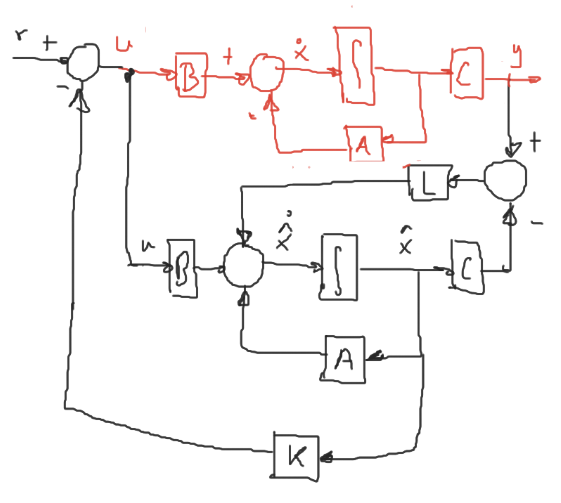 r + u B + ẋ ∫ C y
-
- A
+
L
-
u B x̂̇ ∫ x̂ C
A
K